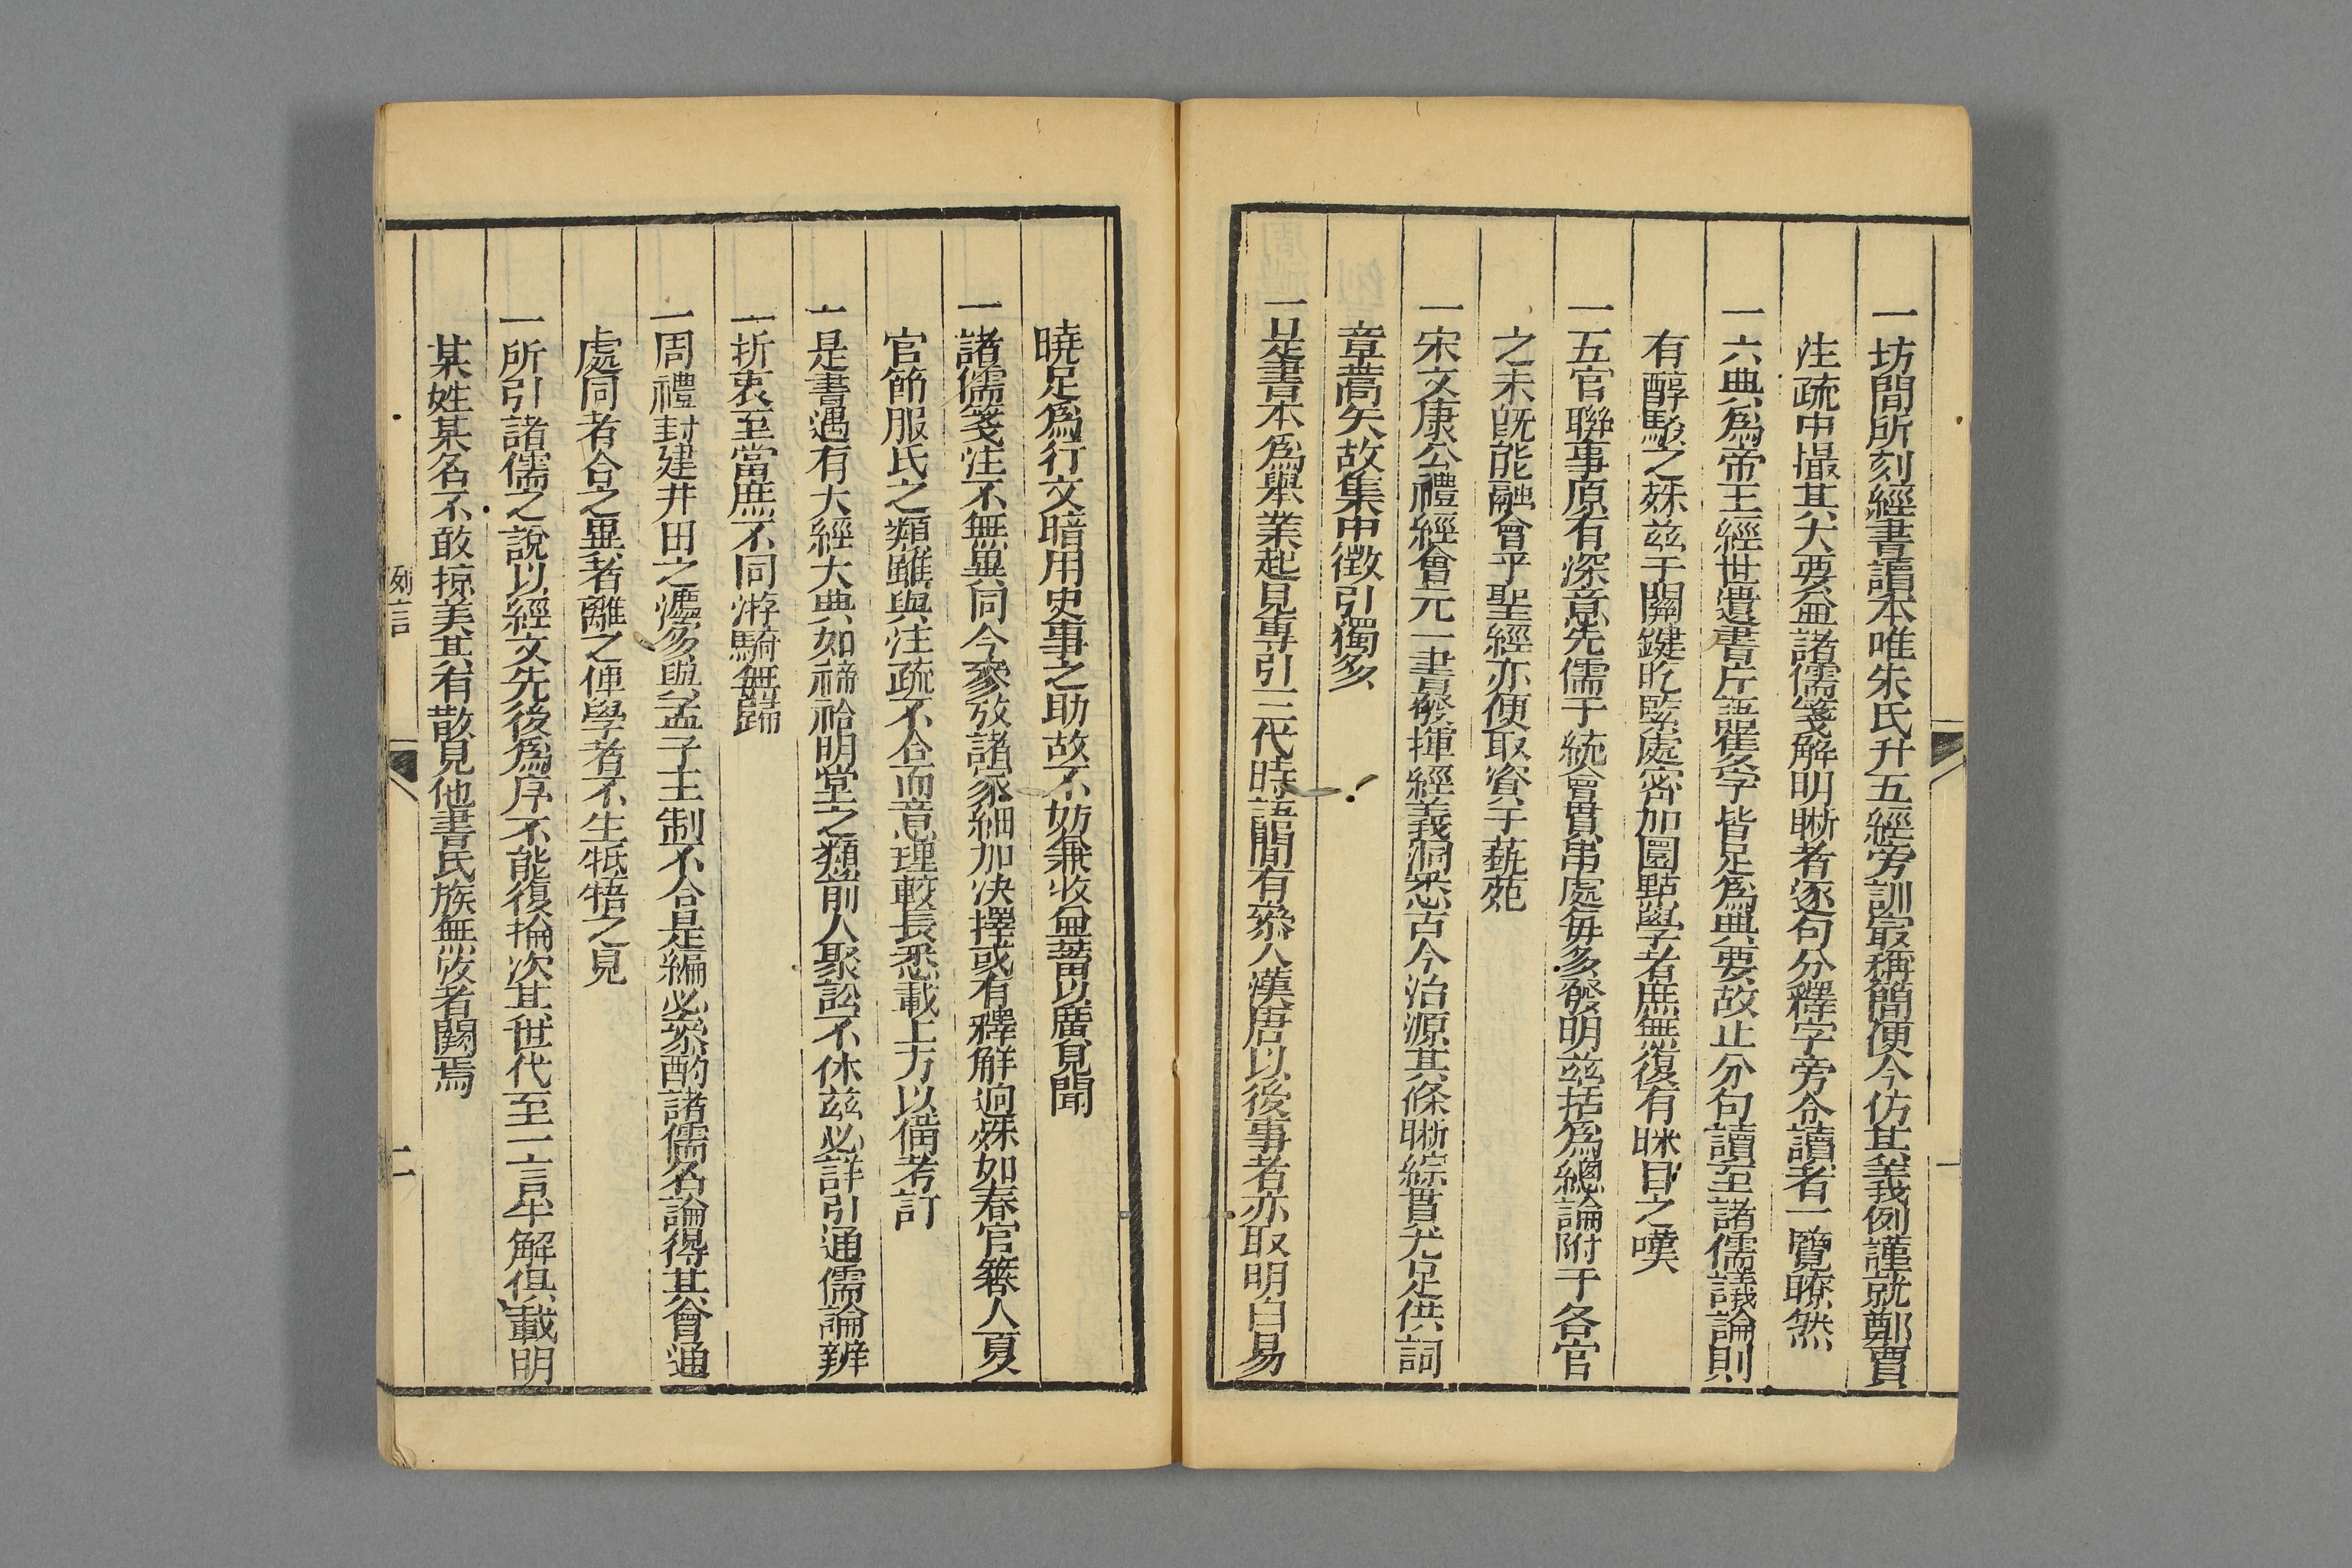 一坊間所刻經書讀本唯朱氏升五經旁訓最稱簡便今仿其義例謹就鄭賈
注疏中撮其大要益諸儒箋解明晰者逐句分釋字旁令讀者一覽瞭然
一六典爲帝王經世遺書片語隻字皆足爲典要故止分句讀至諸儒議論則
有醇駁之殊兹于關鍵吃緊處密加圈點學者庶無復有眯目之嘆
一五官聯事原有深意先儒于統會貫串處每多發明兹括爲總論附于各官
之末旣能融會乎聖經亦便取資于蓺苑
一宋文康公禮經會元一書發揮經義洞悉古今治源其條晰綜貫尤足供詞
章蒿矢故集中徵引獨多
一是書本爲舉業起見專引三代時語間有叅入漢唐以後事者亦取明白易
曉足爲行文暗用史事之助故不妨兼收並蓄以廣見聞
一諸儒箋注不無異同今參攷諸家細加决擇或有釋解逈殊如春官簭人夏
官節服氏之類雖與注疏不合而意理較長悉載上方以備考訂
一是書遇有大經大典如禘祫明堂之類前人聚訟不休兹必詳引通儒論辨
一折衷至當庶不同游騎無歸
一周禮封建井田之灋多與孟子王制不合是編必叅酌諸儒名論得其會通
處同者合之異者離之俾學者不生牴牾之見
一所引諸儒之說以經文先後爲序不能復掄次其世代至一言半解俱載明
某姓某名不敢掠美其有散見他書氏族無攷者闕焉
例言
二